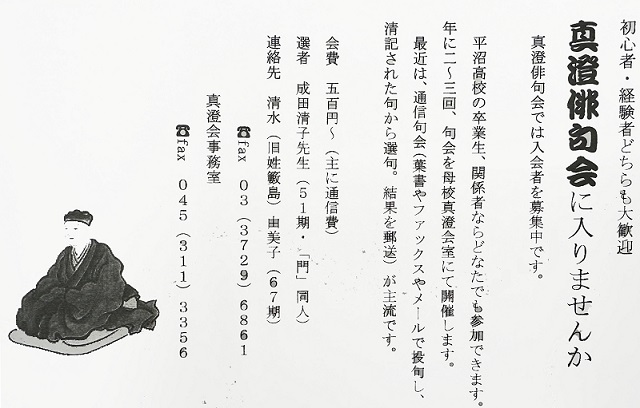 初心者・経験者どちらも大歓迎
真澄俳句会に入りませんか
真澄俳句会では入会者を募集中です。
平沼高校の卒業生、関係者ならどなたでも参加できます。
年に二～三回、句会を母校真澄会室にて開催します。
最近は、通信句会（葉書やファックスやメールで投句し、
清記された句から選句。結果を郵送）が主流です。
会費　五百円～（主に通信費）
選者　成田清子先生（５１期・「門」同人）
連絡先　清水（旧姓籔島）由美子（６７期）
☎fax　０３（３７２９）６８６１
真澄会事務室
☎fax　０４５（３１１）３３５６